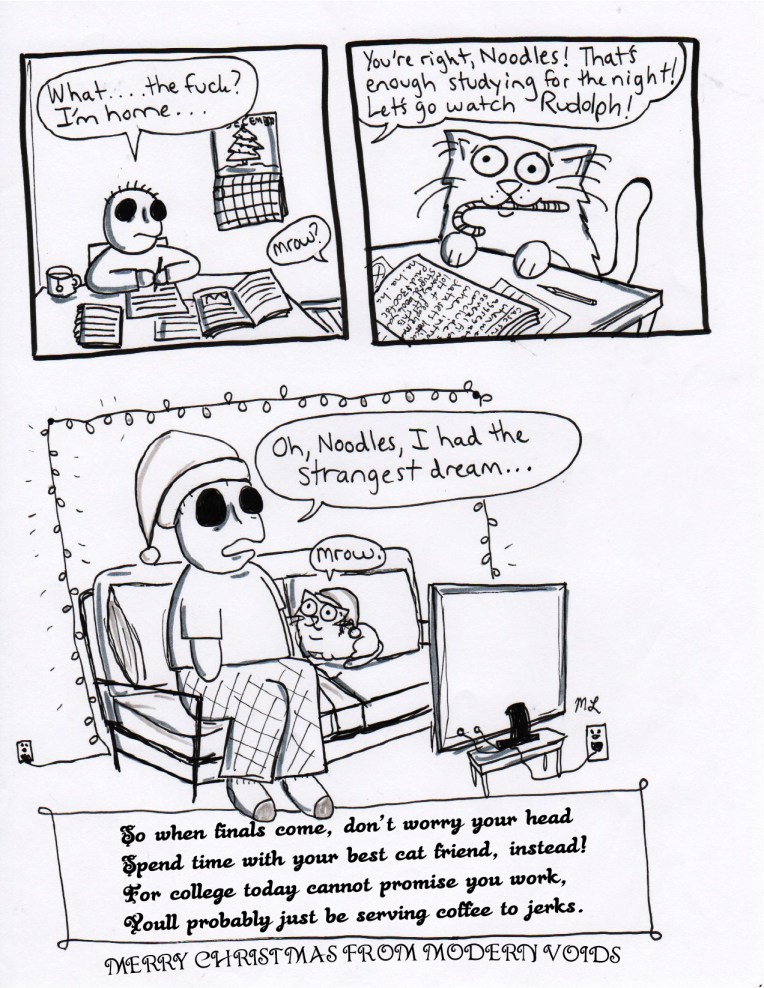 What....the fuck?
I'm home...
DECEMBER
mrow?
You're right, Noodles! That's
enough studying for the night!
Let's go watch Rudolph!
Oh, Noodles, I had the
strangest dream...
mrow.
ML
So when finals come, don't worry your head
Spend time with your best cat friend, instead!
For college today cannot promise you work,
Youll probably just be serving coffee to jerks.
MERRY CHRISTMAS FROM MODERN VOIDS